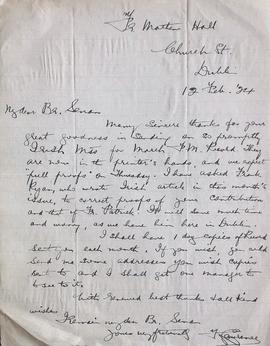 Fr Mathew Hall
Church St.
Dublin
12 Feb. '24
My dear Br. Senan
Many sincere thanks for your
great goodness in sending on so promptly
Irish Mss for March F.M. Record They
are now in the printer's hands, and we expect
"full proofs" on Thursday. I have asked Frank
Ryan, who wrote Irish article in this month's
issue, to correct proofs of your contribution
and that of Fr. Patrick. It will save much time
and worry, as we have him here in Dublin.
I shall have 1 doz copies of Record
sent on each month. If you wish, you wld
send me some addresses you wish copies
sent to and I shall get our manager to
to see to it.
With renewed best thanks and kind
wishes
I remain my dear Br. Senan
Yours very fraternally